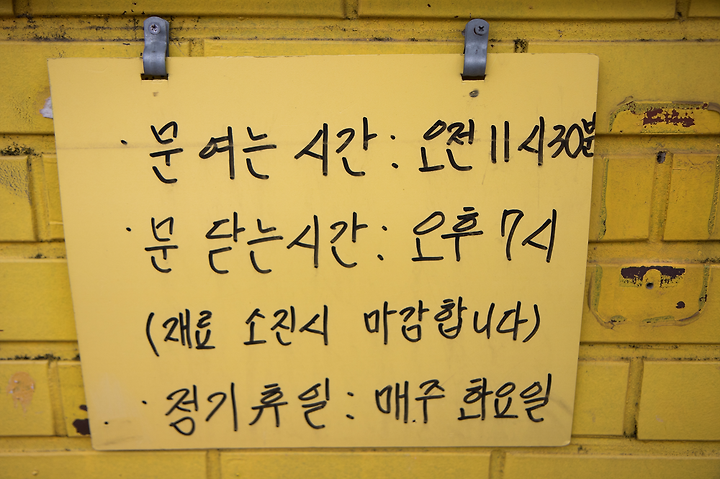 · 문 여는 시간 : 오전 11시30분
· 문 닫는시간 : 오후 7시
(재료 소진시 마감합니다)
· 정기휴일 : 매주 화요일